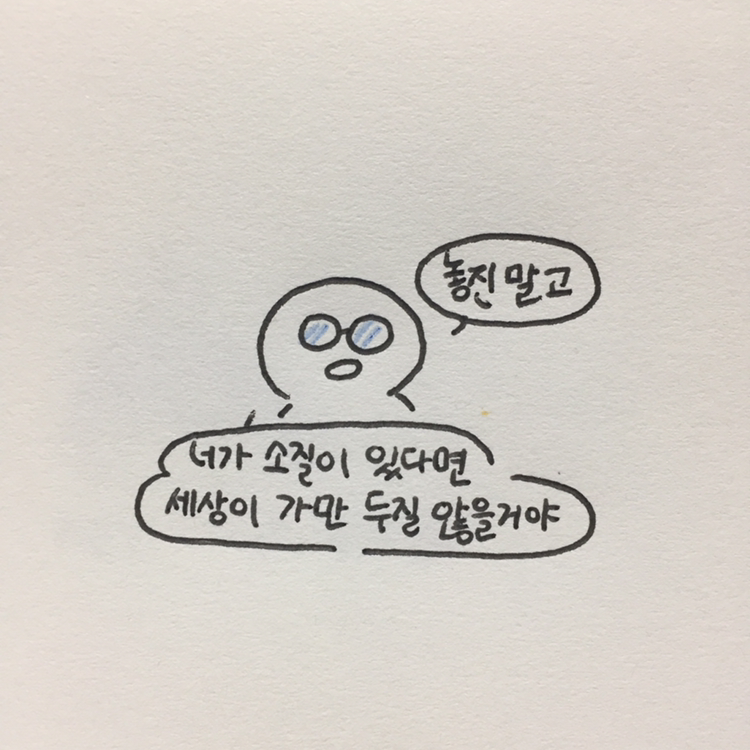 놓진 말고
너가 소질이 있다면
세상이 가만 두질 않을거야